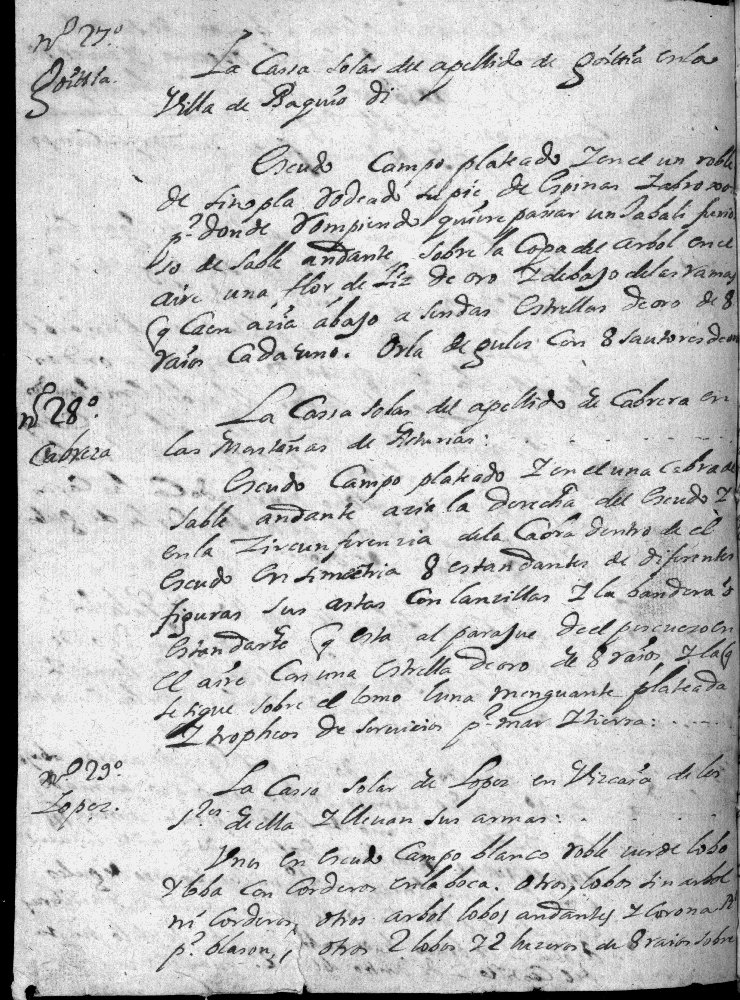 nº 27º
Goittia.
La Cassa solar del apellido de goittia en la
Villa de Baquio di
Escudo Campo plateado Y en el un roble
de sinopla Rodeado su pie de Espinas Y abroxos
p.r donde Rompiendo quiere passar un Jabali furio
so de sable andante sobre la Copa del arbol en el
aire una flor de Liz de oro Y debajo de las ramas
q Caen azia abajo a sendas estrellas de oro de 8
raios Cada uno. Orla de gules Con 8 sautores de oro
nº 28º.
Cabreza
La Cassa solar del apellido de Cabrera en
las Montañas de Asturias:
Escudo Campo plateado Y en el una Cabra de
sable andante azia la derecha del Escudo Y
en la Zircunferenzia de la Cabra dentro de el
escudo en simetria 8 estandartes de diferentes
figuras sus astas Con lanzillas Y la bandera ò
estandarte q esta al parage de el pescuezo en
el aire Con una estrella de oro de 8 raios, Y la q
se sigue sobre el lomo luna menguante plateada
Y tropheos de servicios p.r mar Y tierra:
nº 29º
Lopez.
La Cassa solar de Lopez en Vizcaia de los
S.res de ella Y llevan sus armas:
Unos en escudo Campo blanco roble verde lobo
Y loba con Corderos en la boca. otros, lobos sin arbol
ni Corderos, otros arbol lobos andantes, Y Corona
p.r blason, otros 2 lobos Y 2 luzeros, de 8 raios sobre